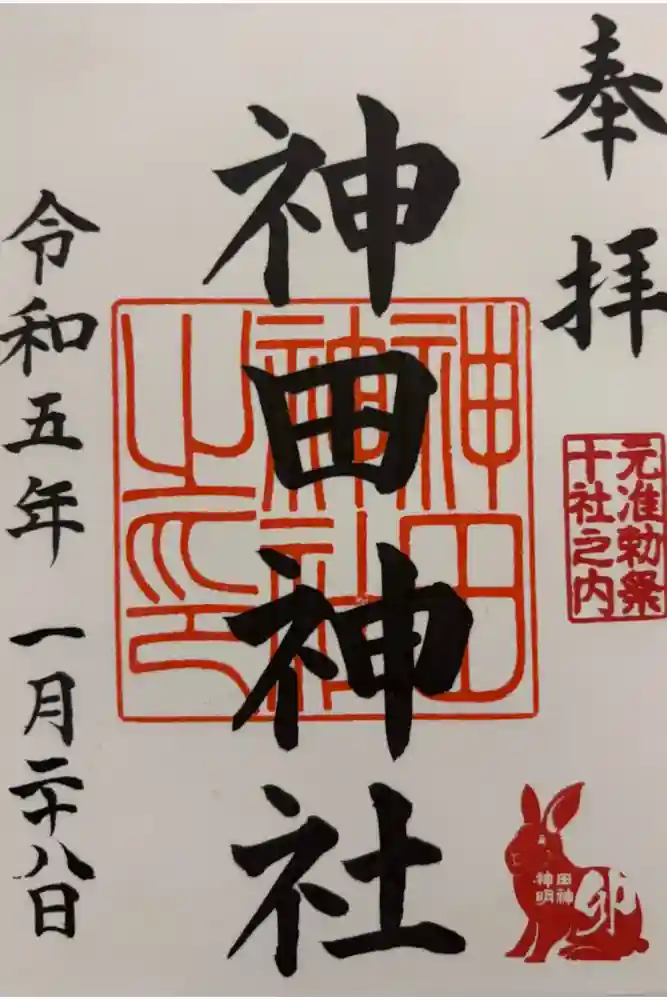 奉拝
元准勅祭
十社之内
神田神社
神田
神社
之印
令和五年 一月二十八日
田神
神明
卯